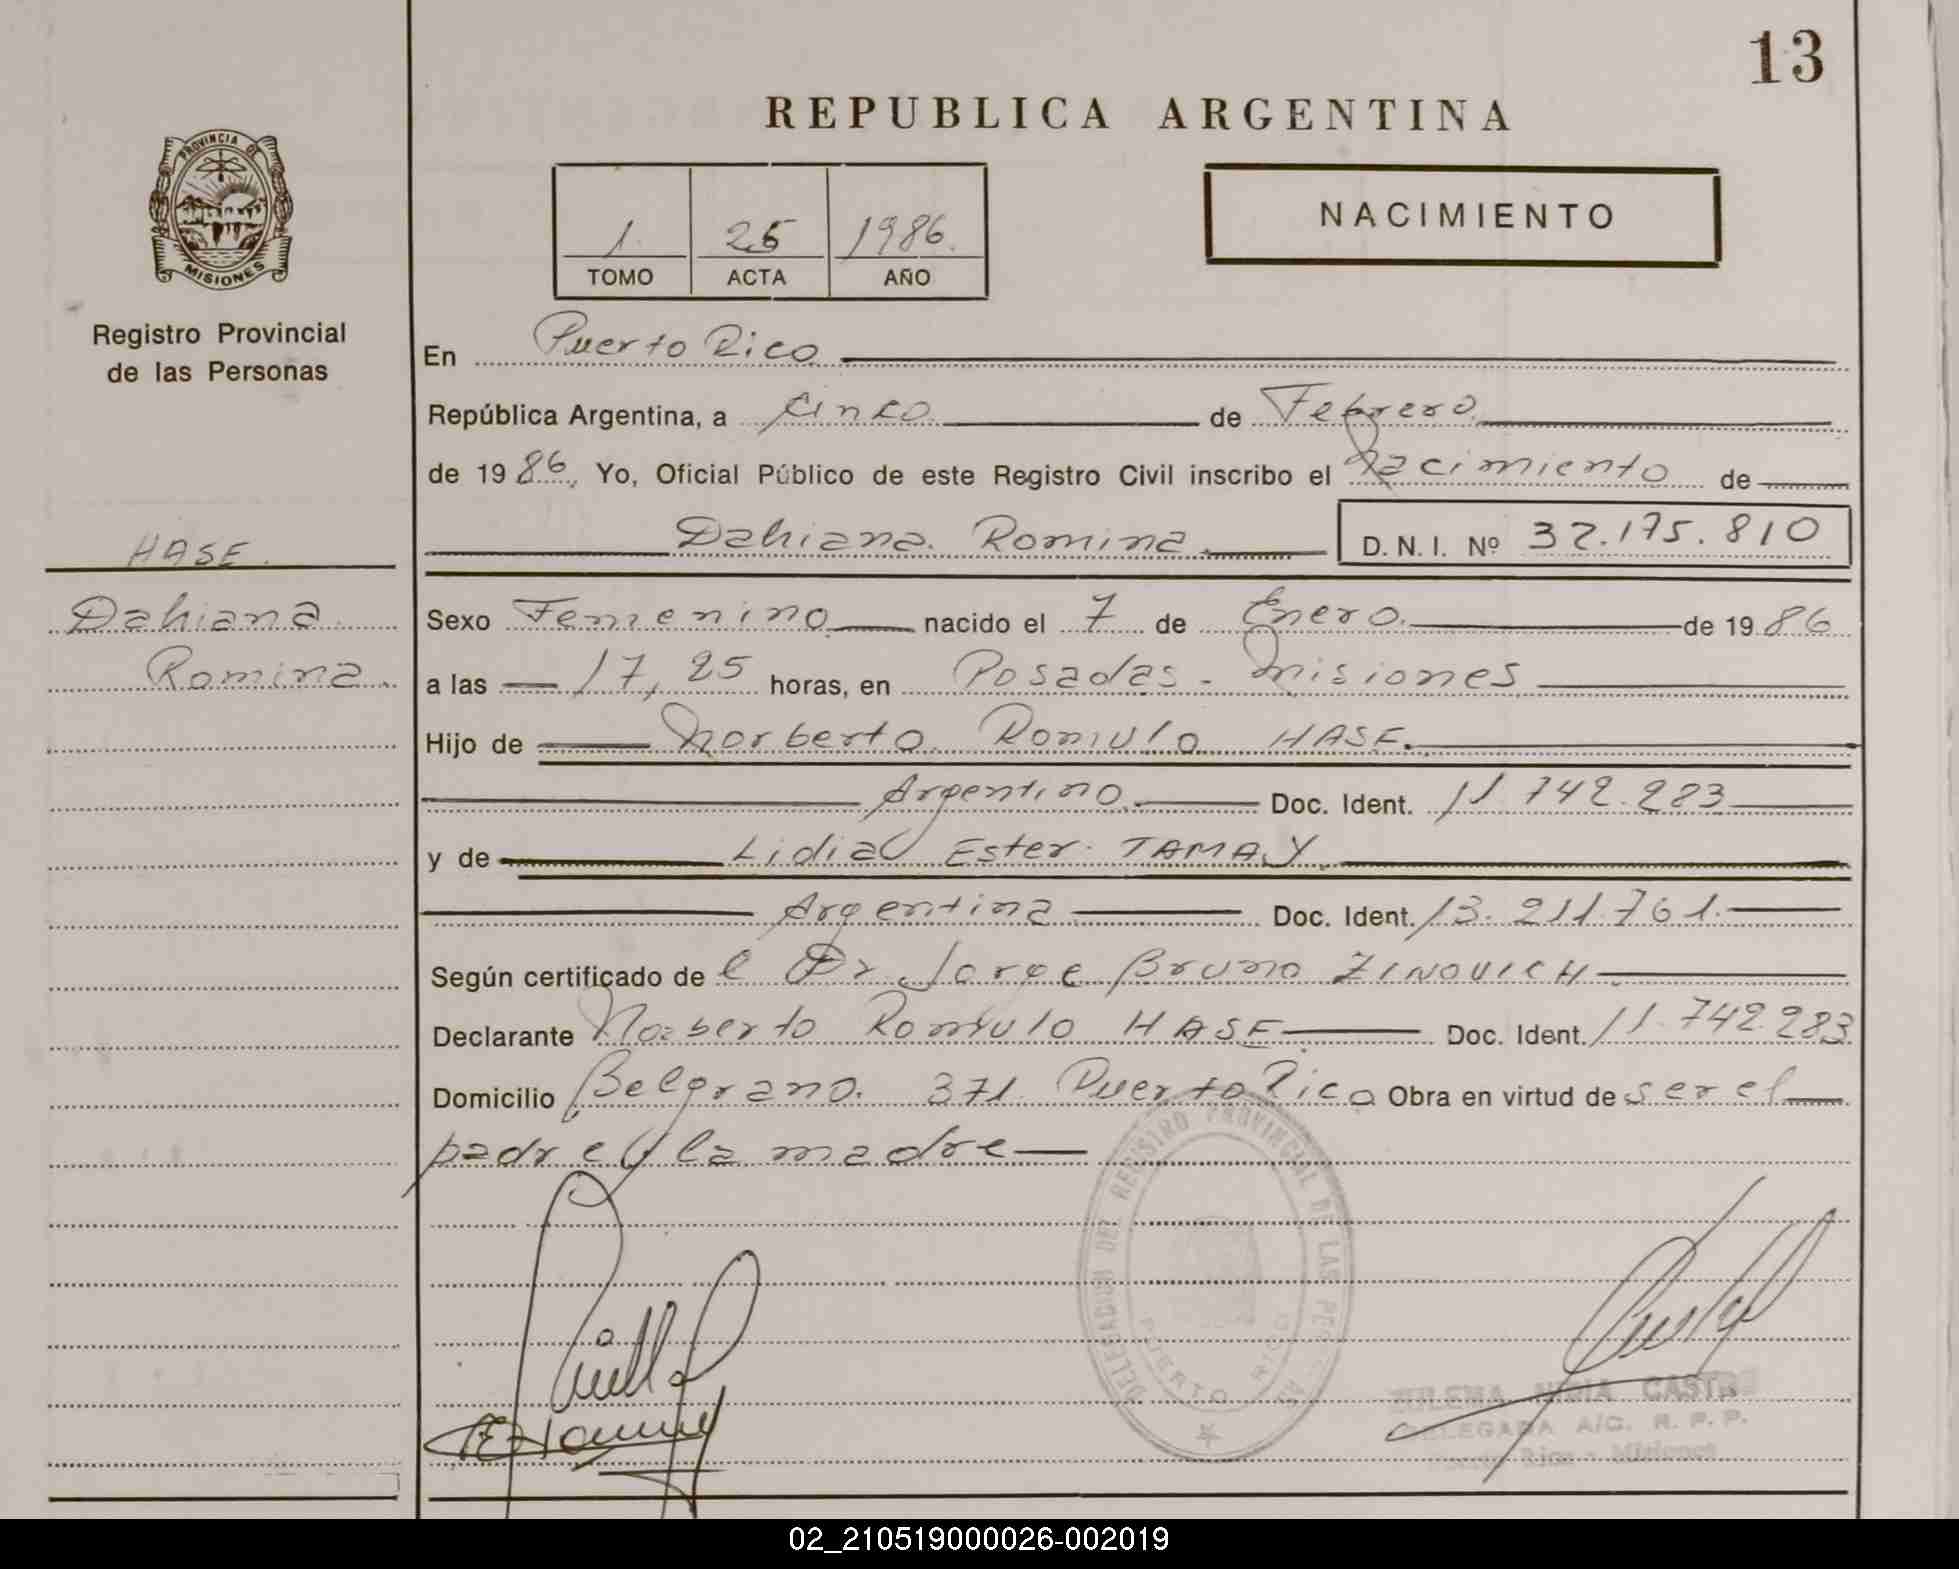 13
REPUBLICA ARGENTINA
PROVINCIA DE
MISIONES
Registro Provincial
de las Personas
1 25 1986.
TOMO ACTA AÑO
NACIMIENTO
En Puerto Rico
República Argentina, a cinco de Febrero
de 1986, Yo, Oficial Público de este Registro Civil inscribo el Nacimiento de
HASE.
Dahiana Romina D. N. I. Nº 32.175.810
Dahiana
Romina.
Sexo Femenino nacido el 7 de Enero de 1986
a las 17,25 horas, en Posadas - Misiones
Hijo de Norberto Romulo HASE.
Argentino Doc. Ident. 11.742.283
y de Lidia Ester TAMAY
Argentina Doc. Ident. 13.211.761.
Según certificado de el Dr Jorge Bruno ZINOVICH
Declarante Norberto Romulo HASE Doc. Ident. 11.742.283
Domicilio Belgrano 371 Puerto Rico Obra en virtud de ser el
padre y la madre
DELEGACION DEL REGISTRO PROVINCIAL DE LAS PERSONAS
PUERTO RICO
ZULEMA NIDIA CASTRO
DELEGADA A/C. R. P. P.
Puerto Rico - Misiones
02_210519000026-002019